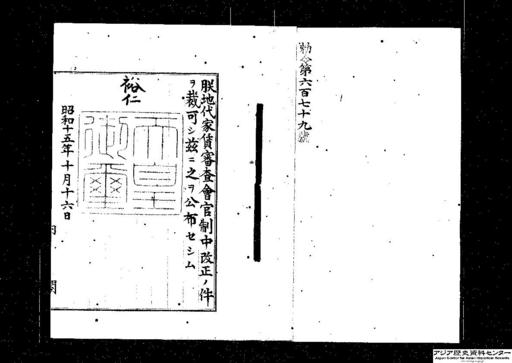 勅令第六百七十九號
朕地代家賃審査會官制中改正ノ件
ヲ裁可シ茲ニ之ヲ公布セシム
裕仁
天皇御璽
昭和十五年十月十六日
内閣
アジア歴史資料センター
Japan Center for Asian Historical Records